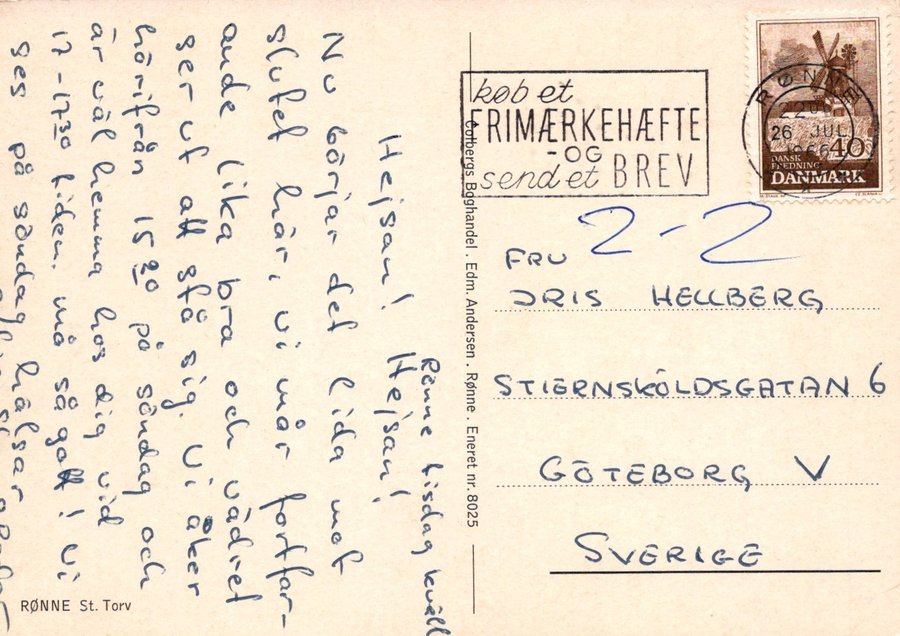 Rønne tisdag kväll
Hejsan! Hejsan!
Nu börjar det lida mot
slutet här, vi mår fortfar-
ande lika bra och vädret
ser ut att stå sig. Vi åker
härifrån 15 på söndag och
är väl hemma hos dig vid
17-17³⁰ tiden. må så gott! vi
ses på söndag hälsar
køb et
FRIMÆRKEHÆFTE
-OG
send et BREV
RØNNE
26 JUL.
1966
40
DANSK
FREDNING
DANMARK
2-2
FRU
IRIS HELLBERG
STIERNSKÖLDSGATAN 6
GÖTEBORG V
SVERIGE
Colbergs Boghandel . Edm. Andersen . Rønne . Eneret nr. 8025
RØNNE St. Torv